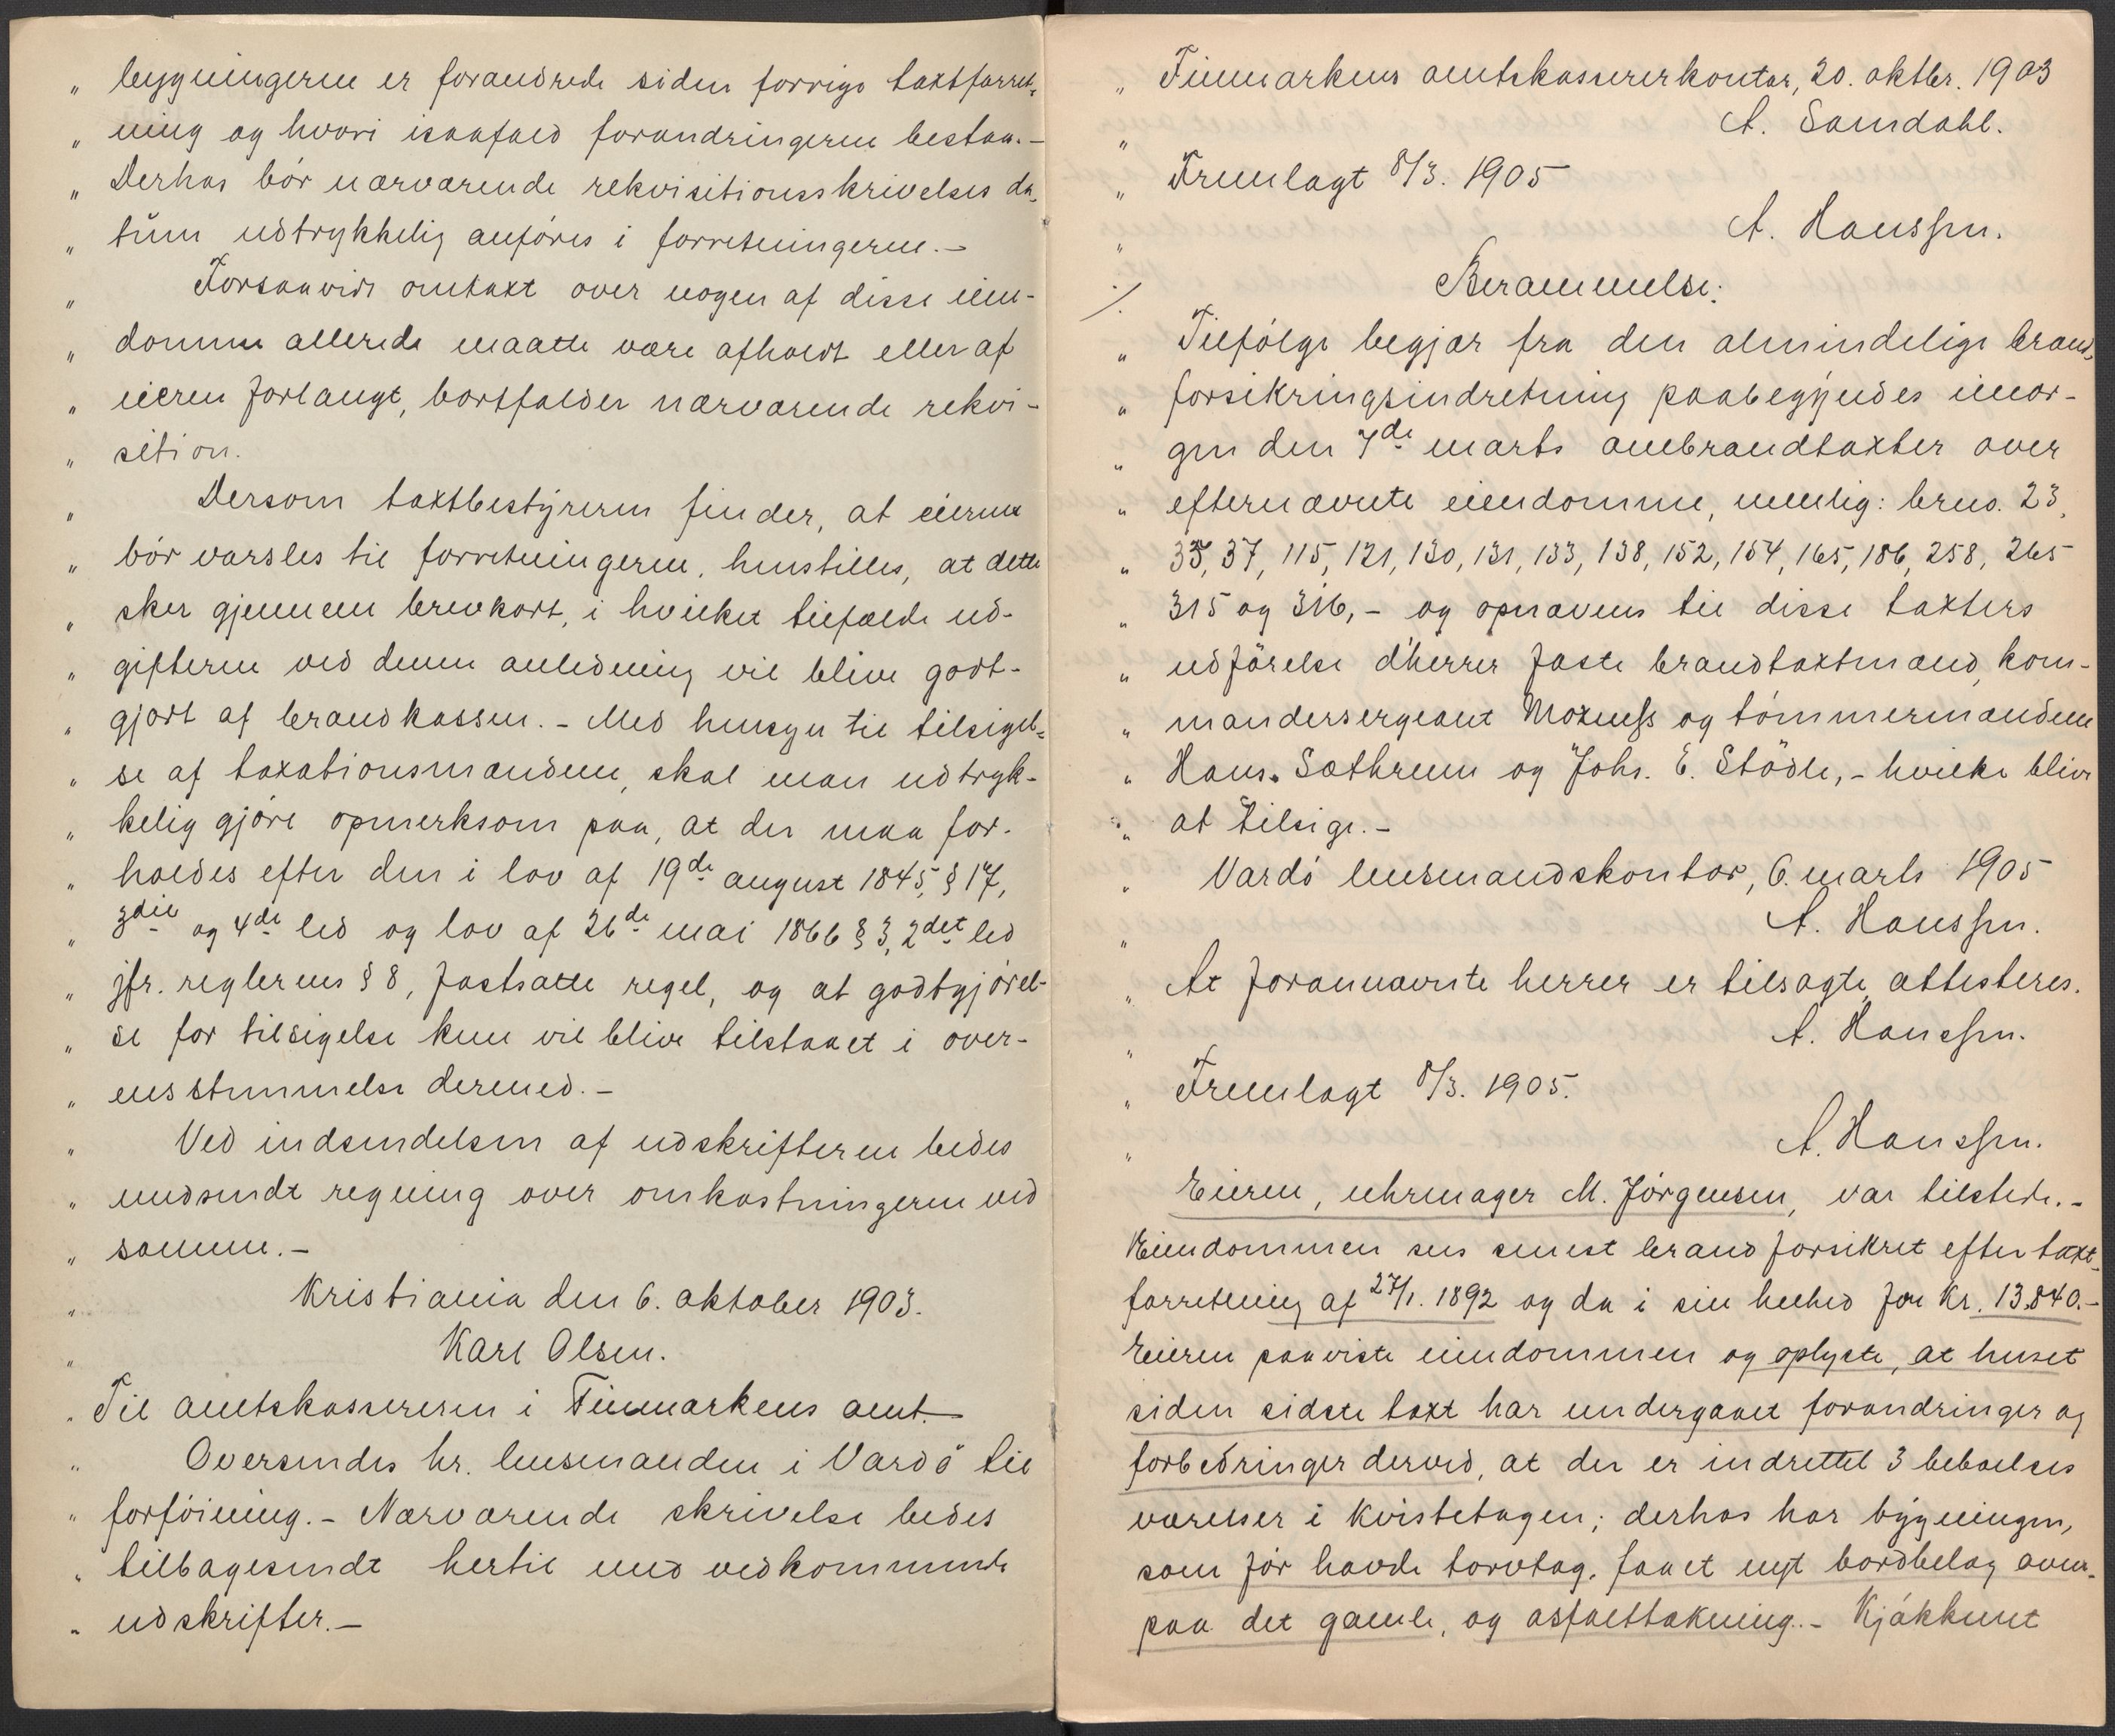 " bygningerne er forandrede siden forrige taxtforret-
" ning og hvori isaafald forandringerne bestaa. -
" Derhos bör nærværende rekvisitionsskrivelses da-
" tum udtrykkelig anföres i forretningerne. -
" Forsaavidt omtaxt over nogen af disse eien-
" domme allerede maatte være afholdt eller af
" eieren forlangt, bortfalder nærværende rekvi-
" sition.
" Dersom taxtbestyreren finder, at eierne
" bör varsles til forretningerne, henstilles, at dette
" sker gjennem brevkort, i hvilket tilfælde ud-
" gifterne ved denne anledning vil blive godt-
" gjort af brandkassen. - Med hensyn til tilsigel-
" se af taxationsmændene, skal man udtryk-
" kelig gjöre opmerksom paa, at der maa for-
" holdes efter den i lov af 19de august 1845, § 17,
" 3die og 4de led og lov af 26de mai 1866 § 3, 2det led
" jfr. reglernes § 8, fastsatte regel, og at godtgjörel-
" se for tilsigelse kun vil blive tilstaaet i over-
" ensstemmelse dermed. -
" Ved indsendelsen af udskrifterne bedes
" medsendt regning over omkostningerne ved
" samme. -
" Kristiania den 6. oktober 1903.
" Karl Olsen.
" Til amtskassereren i Finmarkens amt.
" Oversendes hr. lensmanden i Vardö til
" forföining. - Nærværende skrivelse bedes
" tilbagesendt hertil med vedkommende
" udskrifter. -
" Finmarkens amtskassererkontor, 20. oktbr. 1903
" A. Samdahl.
" Fremlagt 8/3. 1905
" A. Hanssen.
./. Berammelse:
" Tilfölge begjær fra den almindelige brand-
" forsikringsindretning paabegyndes imor-
" gen den 7de marts ombrandtaxter over
" efternævnte eiendomme, nemlig: brno. 23,
" 35, 37, 115, 121, 130, 131, 133, 138, 152, 154, 165, 186, 258, 265
" 315 og 316, - og opnævnes til disse taxters
" udförelse d'herrer faste brandtaxtmand, kom-
" mandersergeant Moxness og tömmermændene
" Hans. Sæthrum og Johs. E. Stödle, - hvilke blive
" at tilsige. -
" Vardö lensmandskontor, 6. marts 1905
" A. Hanssen.
" At forannævnte herrer er tilsagte, attesteres.
" A. Hanssen.
" Fremlagt 8/3. 1905.
" A. Hanssen.
Eieren, uhrmager M. Jörgensen, var tilstede. -
Eiendommen sees senest brandforsikret efter taxt-
forretning af 27/1. 1892 og da i sin helhed for Kr. 13.840. -
Eieren paaviste eiendommen og oplyste, at huset
siden sidste taxt har undergaaet forandringer og
forbedringer derved, at der er indrettet 3 beboelses
værelser i kvistetagen; derhos har bygningen,
som för havde torvtag, faaet nyt bordbelæg oven-
paa det gamle, og asfalttækning. - Kjökkenet